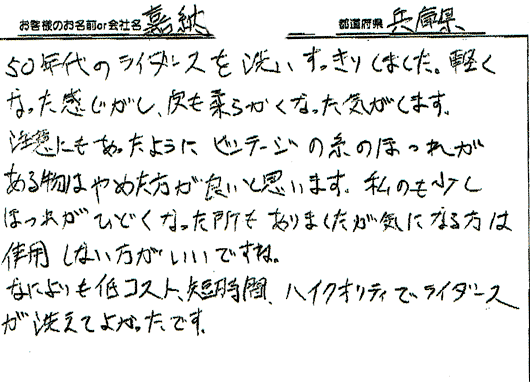 お客様のお名前or会社名 嘉納 都道府県 兵庫県
50年代のライダースを洗いすっきりしました。軽く
なった感じがし、皮も柔らかくなった気がします。
注意にもあったように ビンテージの糸のほつれが
ある物はやめた方が良いと思います。私のも少し
ほつれがひどくなった所もありましたが気になる方は
使用しない方がいいですね。
なによりも低コスト、短時間、ハイクオリティでライダース
が洗えてよかったです.